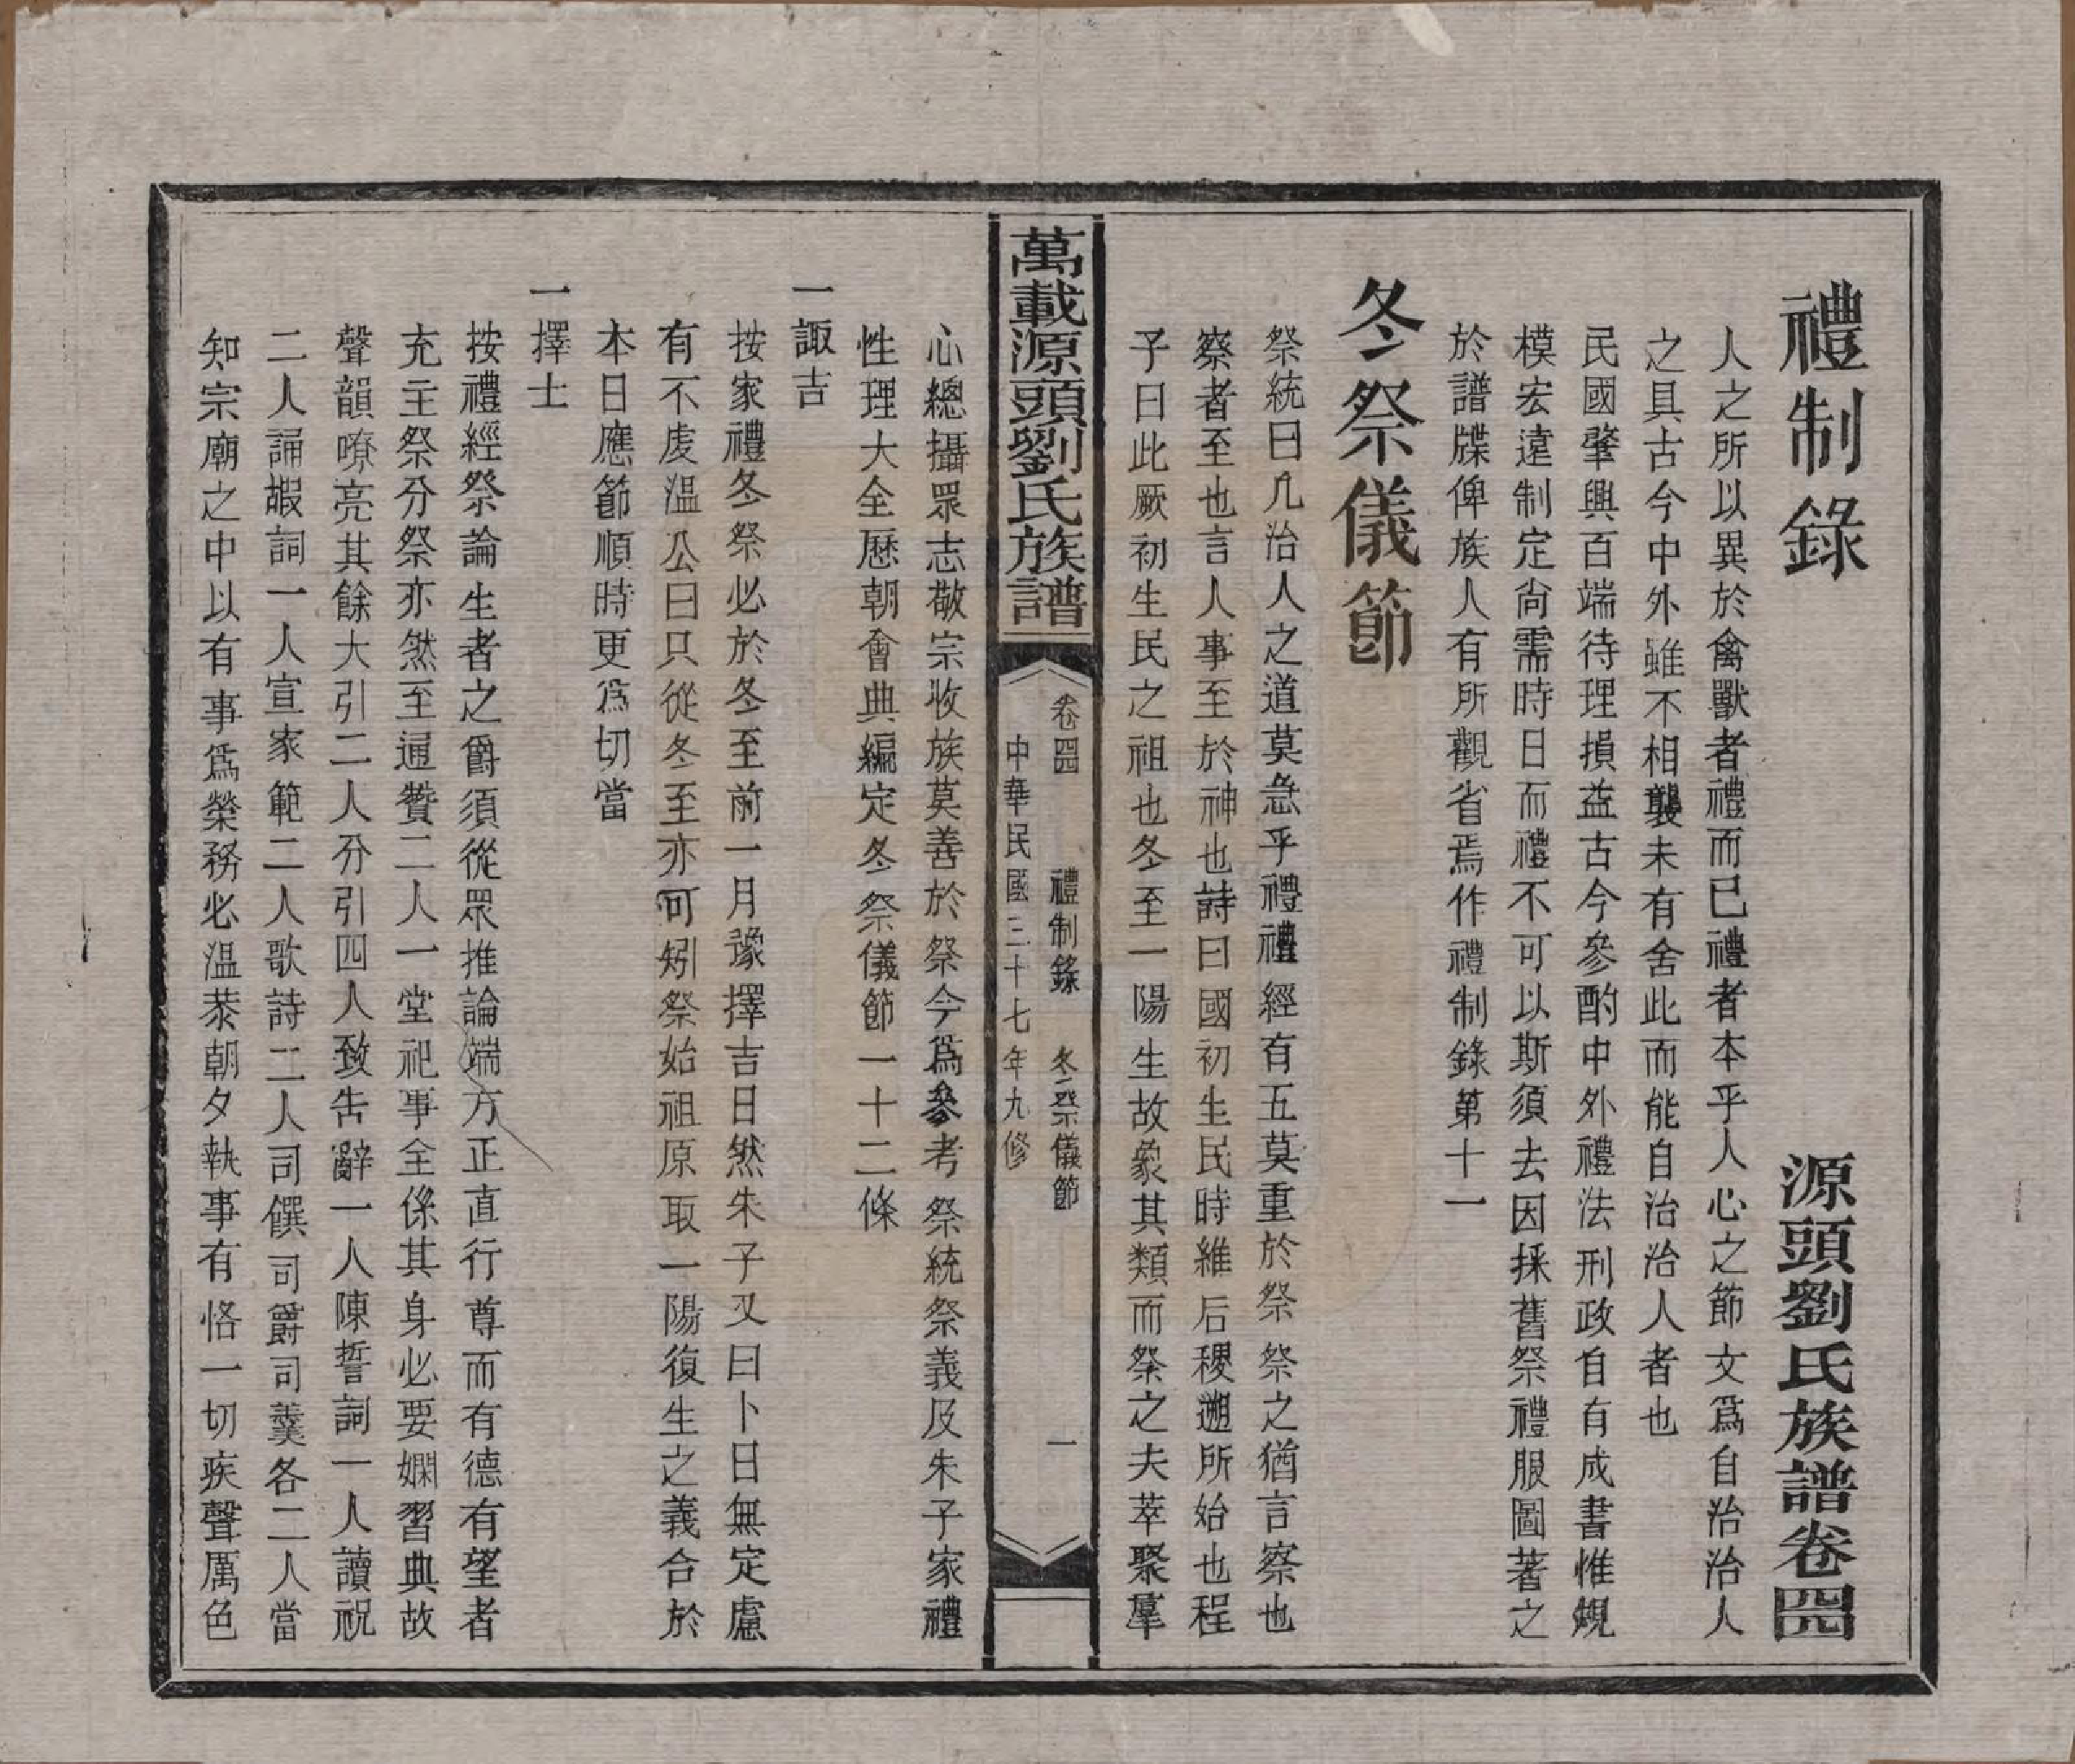 禮制錄
源頭劉氏族譜卷四
人之所以異於禽獸者禮而已禮者本乎人心之節文爲自治治人
之具古今中外雖不相襲未有舍此而能自治治人者也
民國肇興百端待理損益古今參酌中外禮法刑政自有成書惟䂓
模宏遠制定尙需時日而禮不可以斯須去因採舊祭禮服圖著之
於譜牒俾族人有所觀省焉作禮制錄第十一
冬祭儀節
祭統曰凡治人之道莫急乎禮禮經有五莫重於祭祭之猶言察也
察者至也言人事至於神也詩曰國初生民時維后稷遡所始也程
子曰此厥初生民之祖也冬至一陽生故象其類而祭之夫萃聚羣
萬載源頭劉氏族譜
卷四 禮制錄 冬祭儀節 一
中華民國三十七年九修
心總攝眾志敬宗收族莫善於祭今爲參考祭統祭義及朱子家禮
性理大全歷朝會典編定冬祭儀節一十二條
一諏吉
按家禮冬祭必於冬至前一月豫擇吉日然朱子又曰卜日無定慮
有不虔温公曰只從冬至亦可矧祭始祖原取一陽復生之義合於
本日應節順時更爲切當
一擇士
按禮經祭論生者之爵須從眾推論端方正直行尊而有德有望者
充主祭分祭亦然至通贊二人一堂祀事全係其身必要嫻習典故
聲韻嘹亮其餘大引二人分引四人致告辭一人陳誓詞一人讀祝
二人誦嘏詞一人宣家範二人歌詩二人司饌司爵司羹各二人當
知宗廟之中以有事爲榮務必温恭朝夕執事有恪一切疾聲厲色